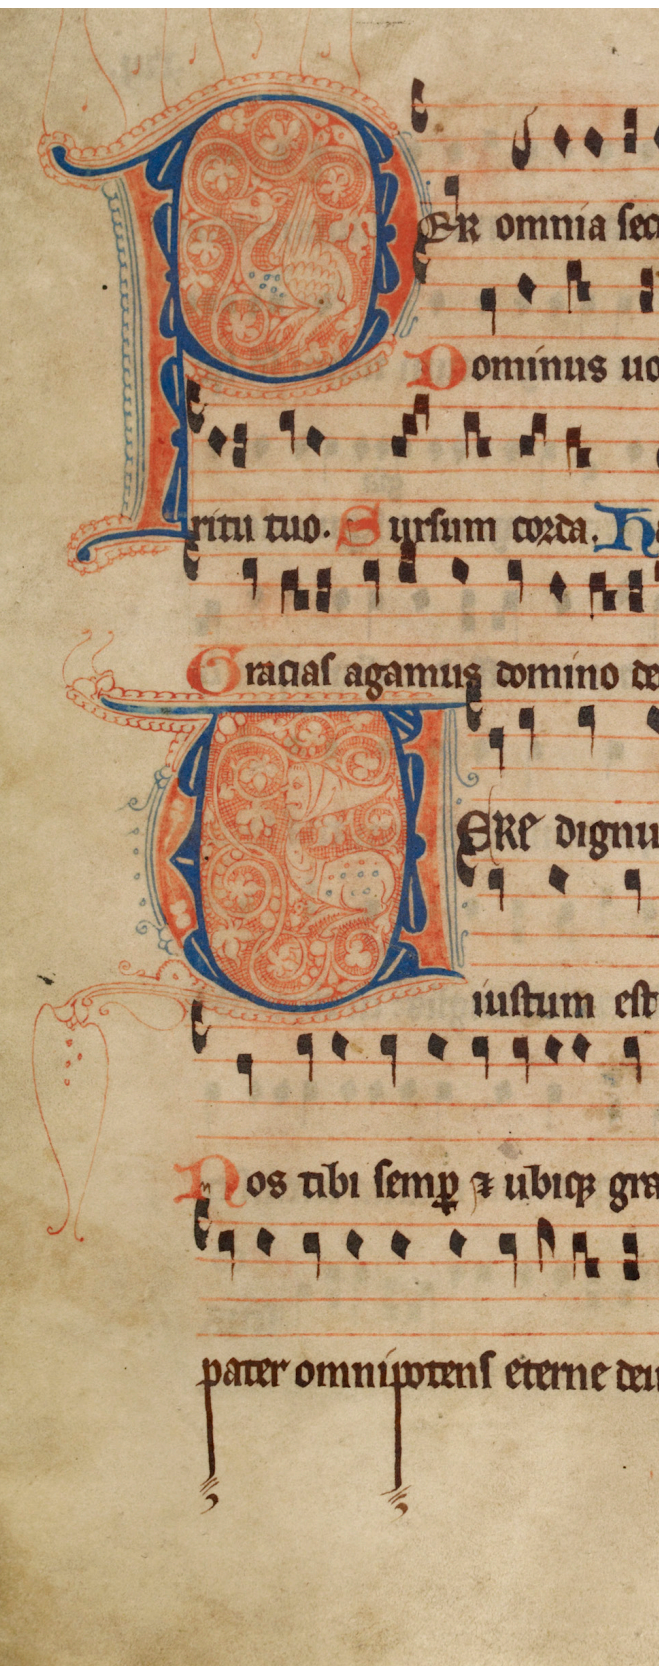 PER omnia sec
Dominus uo
ritu tuo. Sursum corda. Ha
Gracias agamus domino de
VERE dignu
iustum est
Nos tibi semꝑ ⁊ ubiqꝫ gra
pater omnipotens eterne deu